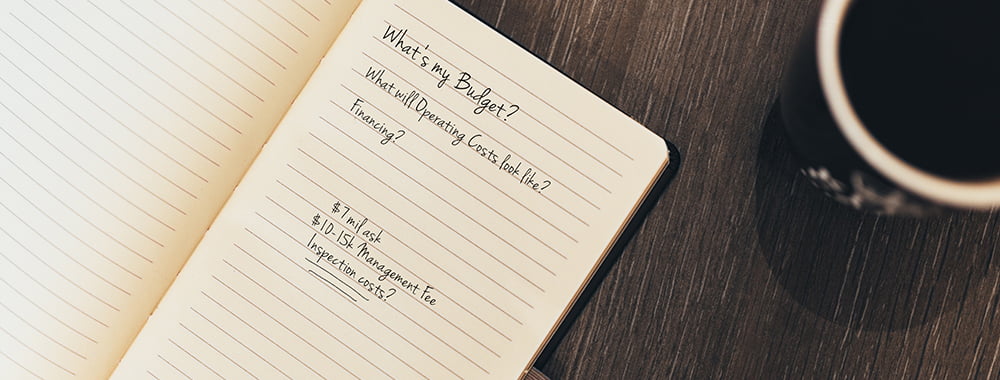 What's my Budget?
What will Operating Costs look like?
Financing?
$7 mil ask
$10-15k Management Fee
Inspection costs?